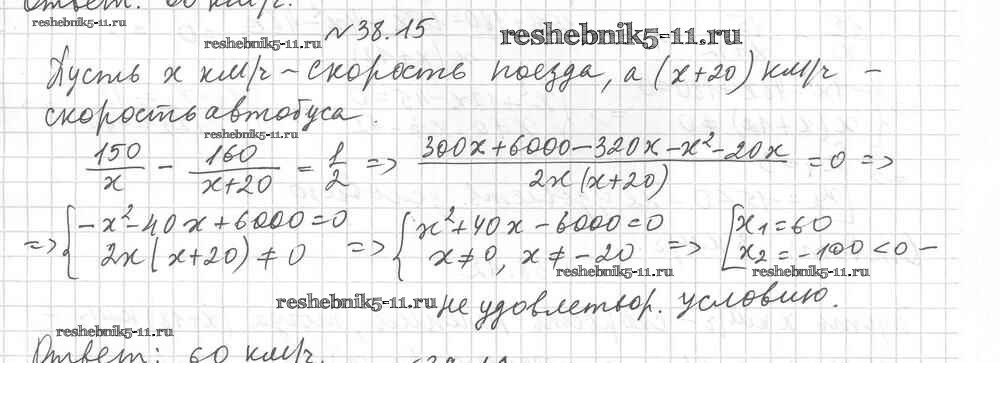 Ответ: 60 км/ч.
reshebnik5-11.ru
№38.15
reshebnik5-11.ru
reshebnik5-11.ru
Пусть x км/ч – скорость поезда, а (x+20) км/ч –
скорость автобуса.
reshebnik5-11.ru
150/x - 160/(x+20) = 1/2 => (300x+6000-320x-x²-20x)/(2x(x+20)) = 0 =>
=> { -x²-40x+6000=0 => { x²+40x-6000=0 => [ x₁=60
2x(x+20)≠0 x≠0, x≠-20 x₂=-100<0 –
reshebnik5-11.ru
reshebnik5-11.ru
reshebnik5-11.ru
не удовлетвор. условию.
reshebnik5-11.ru
Ответ: 60 км/ч.